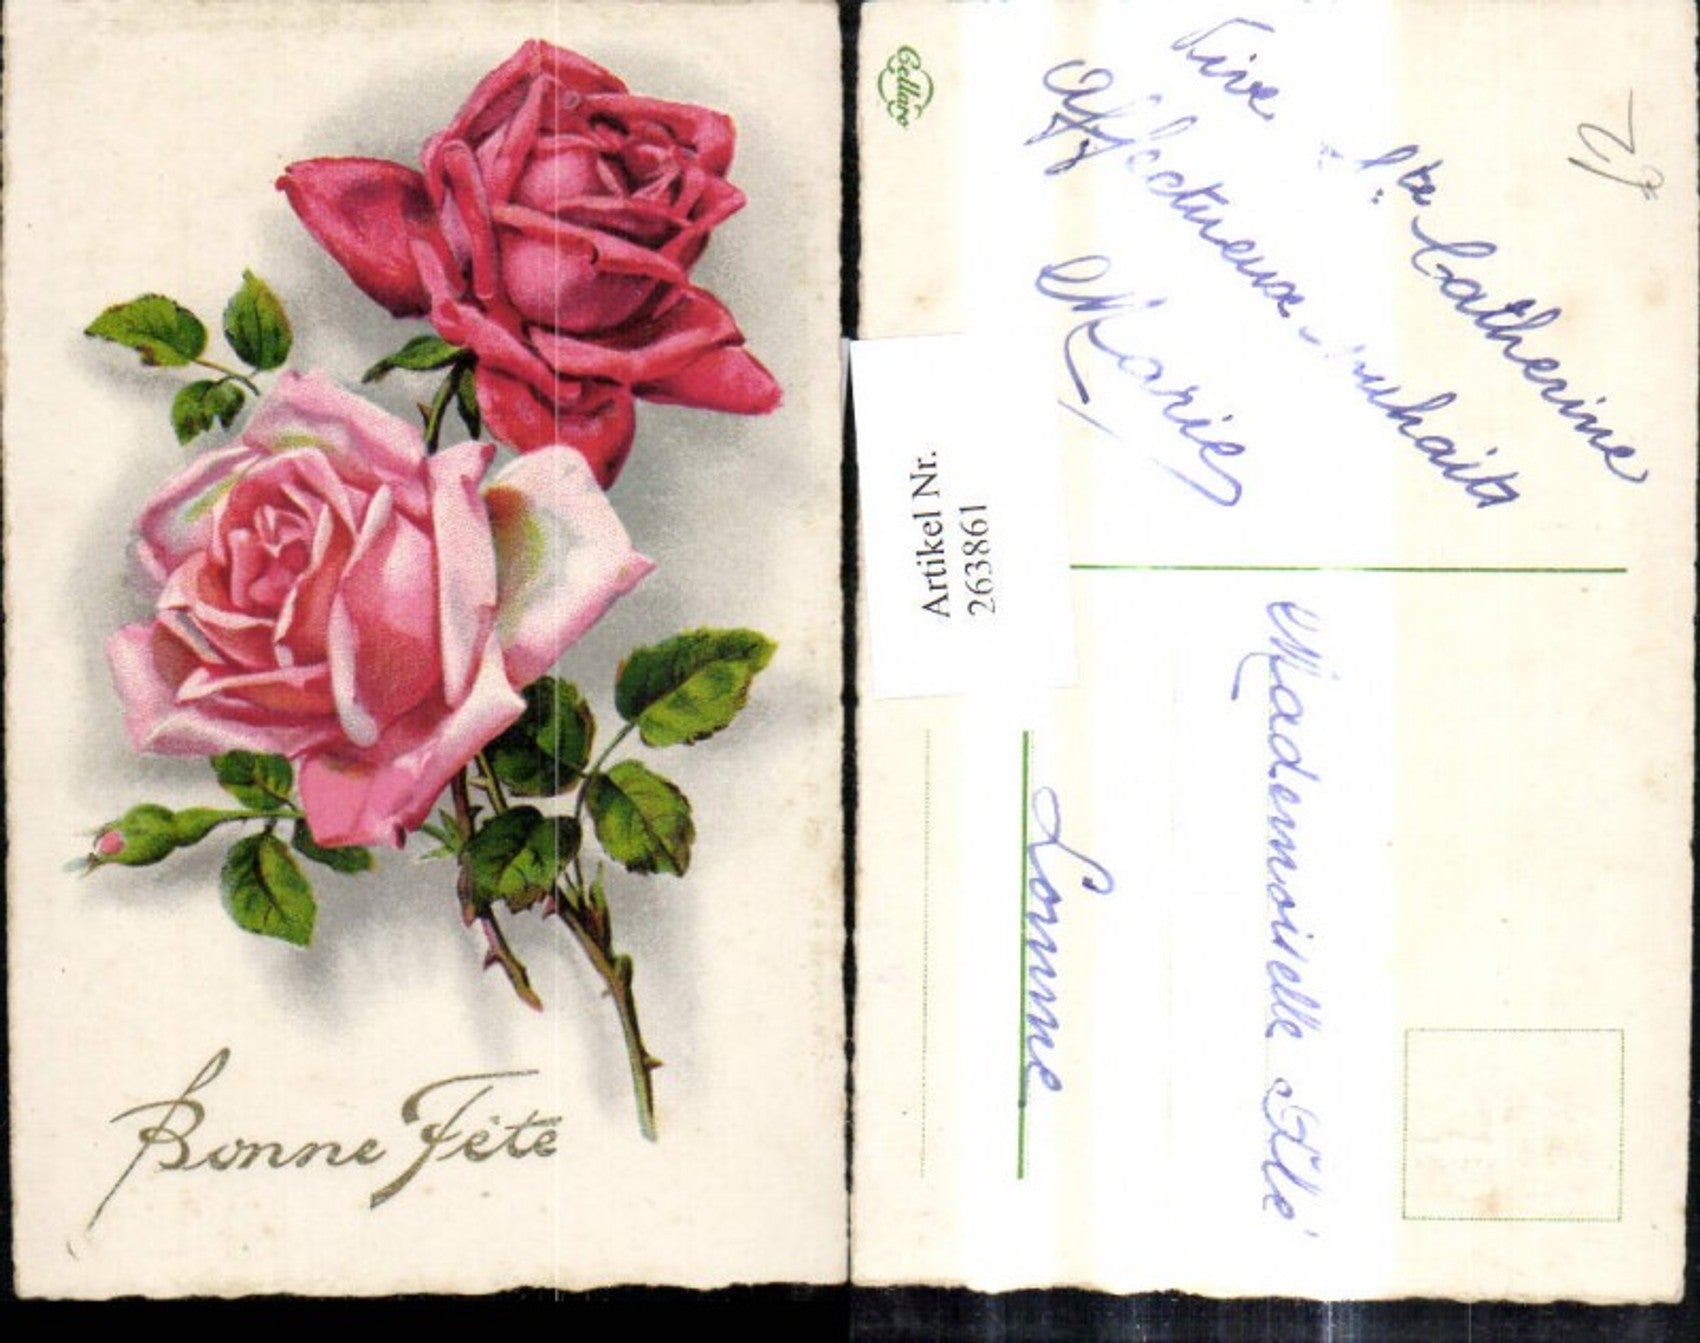 Bonne Fête
Cellaro
Vive
Ste Catherine
Affectueux souhaits
Marie
Artikel Nr.
263861
Mademoiselle